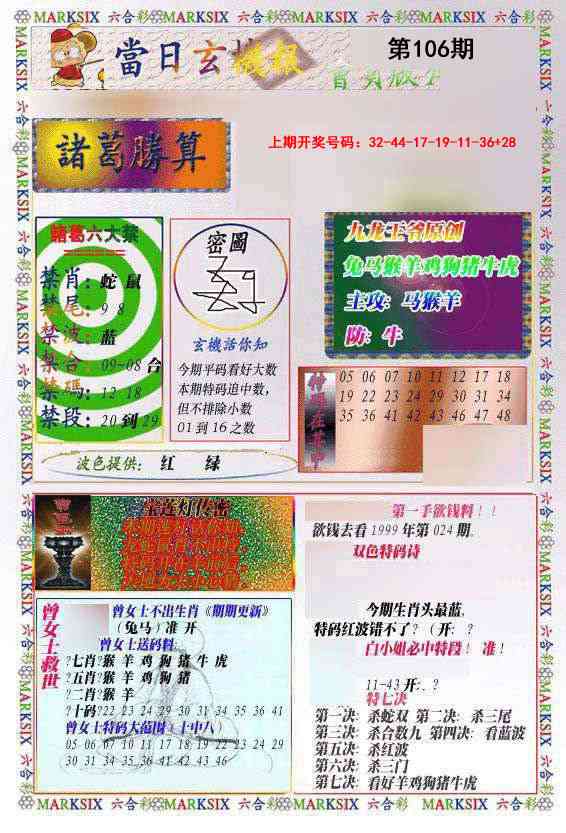 MARKSIX 六合彩 MARKSIX 六合彩 MARKSIX 六合彩 MARKSIX 六合彩 MARKSIX
當日玄機報
第106期
上期开奖号码：32-44-17-19-11-36+28
諸葛勝算
諸葛六大禁
禁肖：蛇 鼠
禁尾：9 8
禁波：蓝
禁合：09-08 合
禁碼：12 18
禁段：20 到 29
密圖
玄機話你知
今期平码看好大数
本期特码追中数，
但不排除小数
01 到 16 之数
九龙王爷原创
兔马猴羊鸡狗猪牛虎
主攻：马猴羊
防：牛
特碼在其中
05 06 07 10 11 12 17 18
19 22 23 24 29 30 31 34
35 36 41 42 43 46 47 48
波色提供： 红 绿
宝莲灯传密
第一手欲钱料！！
欲钱去看 1999 年第 024 期。
双色特码诗
今期生肖头最蓝，
特码红波错不了？（开：？
白小姐必中特段！ 准！
11-43 开：？
特七决
第一决：杀蛇双 第二决：杀三尾
第三决：杀合数九 第四决：看蓝波
第五决：杀红波
第六决：杀三门
第七决：看好羊鸡狗猪牛虎
曾女士救世
曾女士不出生肖《期期更新》
（兔马）准 开
曾女士送码料：
?七肖?猴 羊 鸡 狗 猪 牛 虎
?五肖?猴 羊 鸡 狗 猪
?二肖?猴 羊
?十码?22 23 24 29 30 31 34 35 36 41
曾女士特码大范围（十中八）
05 06 07 10 11 17 18 19 22 23 24 29
30 31 34 35 36 41 42 43 46
MARKSIX 六合彩 MARKSIX 六合彩 MARKSIX 六合彩 MARKSIX 六合彩